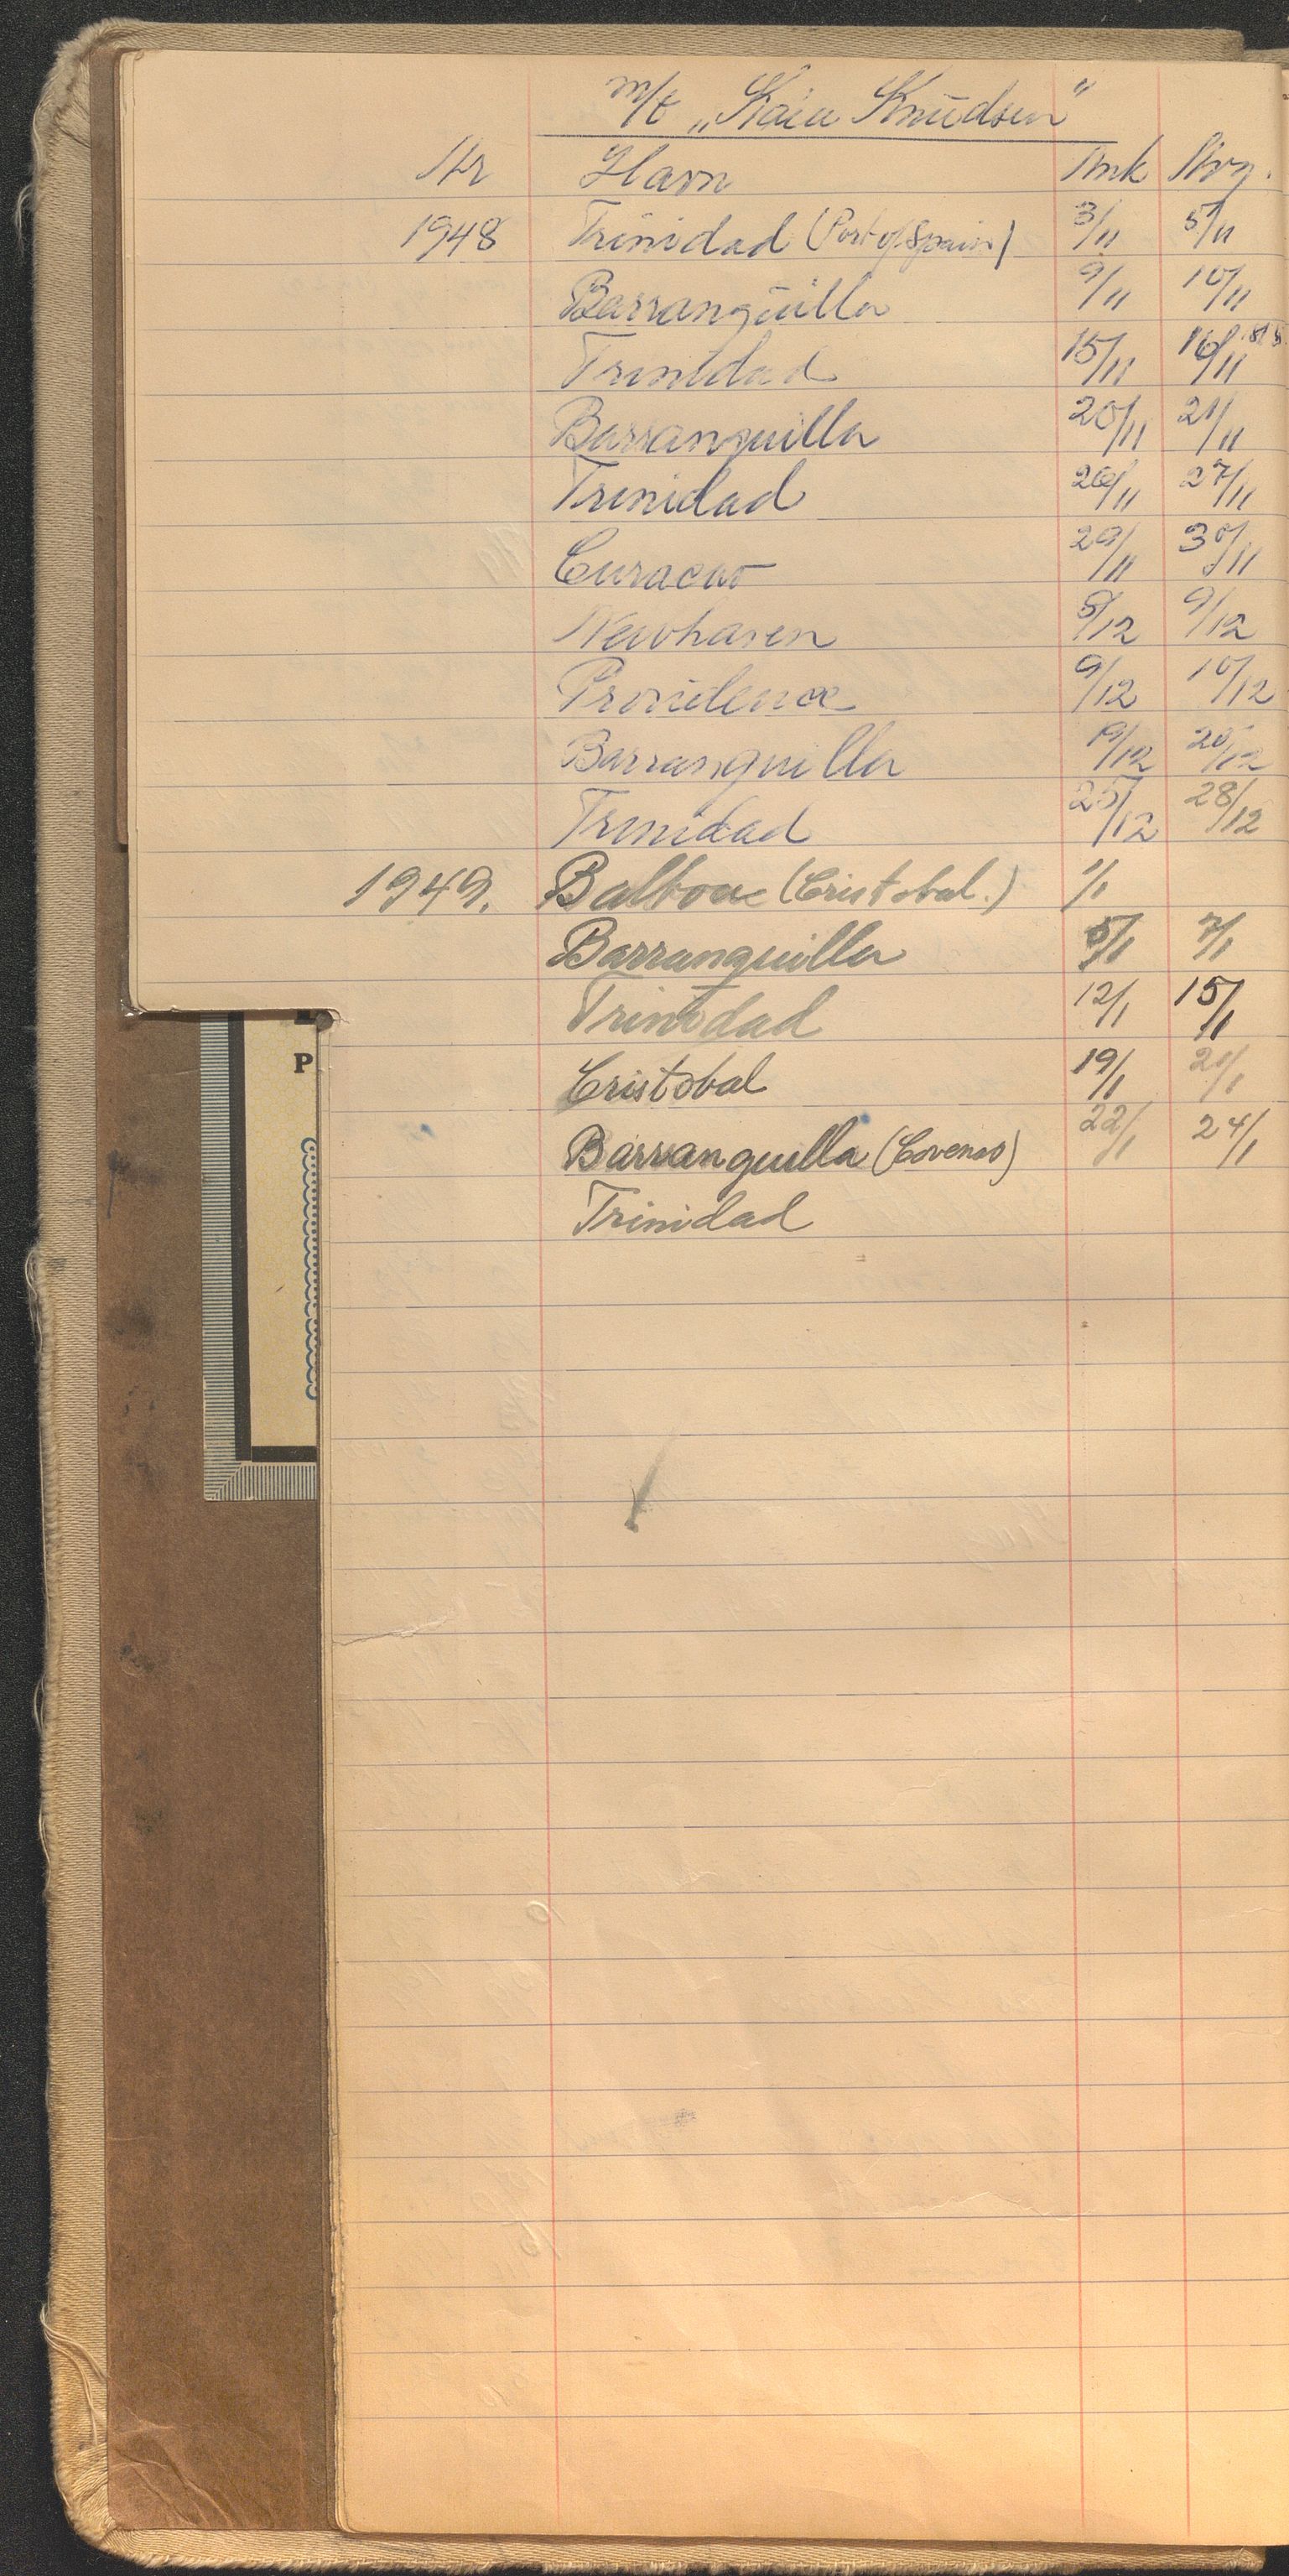 m/t „Kaia Knudsen"
År Havn Ank Avg.
1948 Trinidad (Port of Spain) 3/11 5/11
Barranquilla 9/11 10/11
Trinidad 15/11 16/11
Barranquilla 20/11 21/11
Trinidad 26/11 27/11
Curacao 29/11 30/11
Newhaven 8/12 9/12
Providence 9/12 10/12
Barranquilla 19/12 20/12
Trinidad 25/12 28/12
1949. Balboa (Cristobal.) 1/1
Barranquilla 5/1 7/1
Trinidad 12/1 15/1
Cristobal 19/1 20/1
Barranquilla (Covenas) 22/1 24/1
Trinidad
P